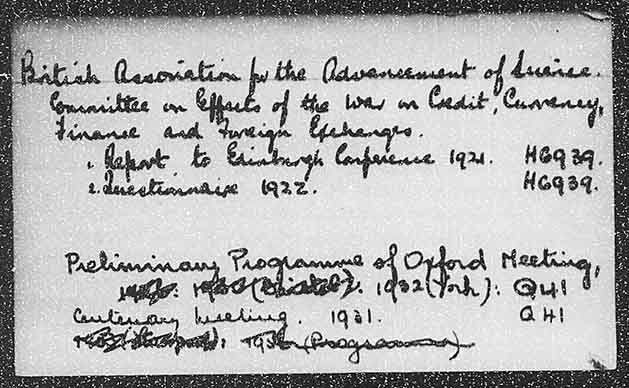 British Association for the Advancement of Science.
Committee on Effects of the War on Credit, Currency,
Finance and Foreign Exchanges.
1. Report to Edinburgh Conference 1921. HG939.
2. Questionnaire 1922. HG939.
Preliminary Programme of Oxford Meeting,
1932 (York): Q41
Centenary Meeting. 1931. Q41
(Programme)